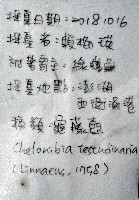 採集日期:20181016
採集者:
附著宿主:綠蠵龜
採集地點:澎湖
西嶼
種類:龜藤壺
Chelonibia testudinaria
(Linnaeus, 1758)